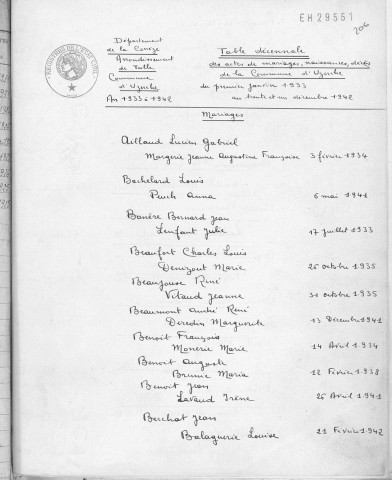 EH 29551
206
Département
de la Corrèze
Arrondissement
de Tulle
Commune
d'Uzerche
An 1933 à 1942
Table décennale
des actes de mariages, naissances, décès
de la Commune d'Uzerche
du premier janvier 1933
au trente et un décembre 1942
Mariages
Aillaud Lucien Gabriel
Margerie Jeanne Augustine Françoise 3 février 1934
Bachelard Louis
Puech Anna 6 mai 1941
Banère Bernard Jean
Lenfant Julie 17 juillet 1933
Beaufort Charles Louis
Denizout Marie 26 octobre 1935
Beaujouse René
Vitaud Jeanne 31 octobre 1935
Beaumont André René
Deredin Marguerite 13 Décembre 1941
Benoit François
Monerie Marie 14 Avril 1934
Benoit Auguste
Brunie Maria 12 Février 1938
Benoit Jean
Lavaud Irène 26 Avril 1941
Berchat Jean
Balaguerie Louise 21 Février 1942